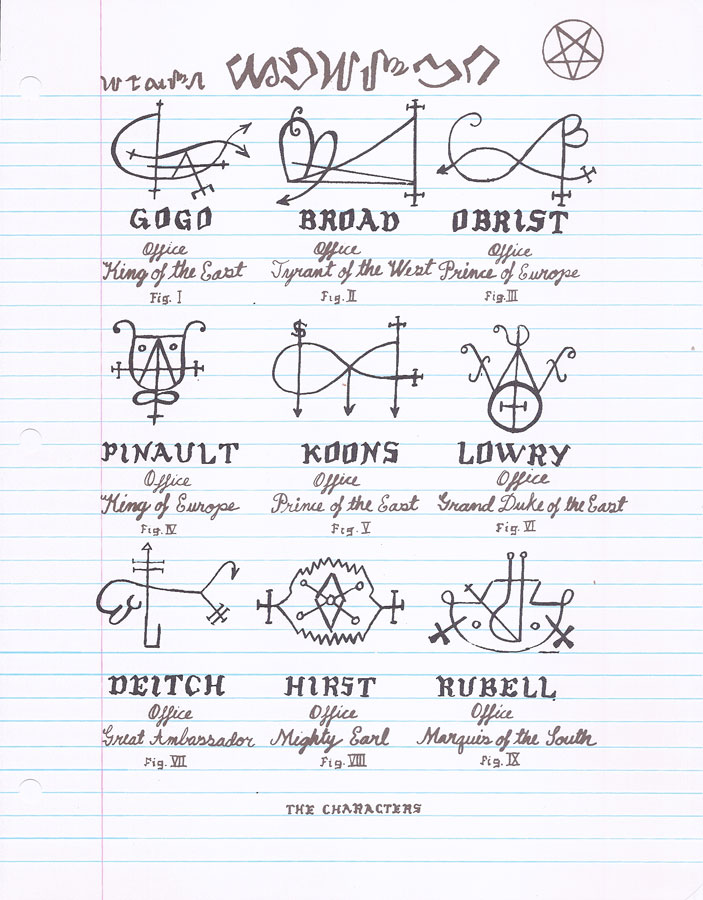 GOGO BROAD OBRIST
Office Office Office
King of the East Tyrant of the West Prince of Europe
Fig. I Fig. II Fig. III
$
PINAULT KOONS LOWRY
Office Office Office
King of Europe Prince of the East Grand Duke of the East
Fig. IV Fig. V Fig. VI
DEITCH HIRST RUBELL
Office Office Office
Great Ambassador Mighty Earl Marquis of the South
Fig. VII Fig. VIII Fig. IX
THE CHARACTERS